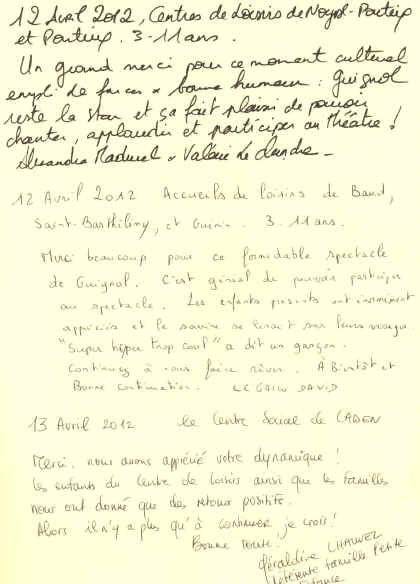 12 Avril 2012, Centres de Loisirs de Noyal-Pontivy
et Pontivy. 3-11ans.
Un grand merci pour ce moment culturel
empli de farces & bonne humeur : Guignol
reste la star et ça fait plaisir de pouvoir
chanter, applaudir et participer au théâtre !
Alexandra & Valérie Le
12 Avril 2012 Accueils de loisirs de Baud,
Saint-Barthélémy, et Guénin. 3.11ans.
Merci beaucoup pour ce formidable spectacle
de Guignol. C'est génial de pouvoir participer
au spectacle. Les enfants présents ont
apprécié et le sourire se lisait sur leurs visages.
"Super hyper trop cool" a dit un garçon.
Continuez à nous faire rêver. À Bientôt et
Bonne continuation. DAVID
13 Avril 2012 Le Centre Social de CADEN
Merci, nous avons apprécié votre dynamique !
Les enfants du Centre de Loisirs ainsi que les familles
nous ont donné que des retours positifs.
Alors il n'y a plus qu'à continuer je crois !
Bonne route !
Géraldine
Référente famille Petite
Enfance